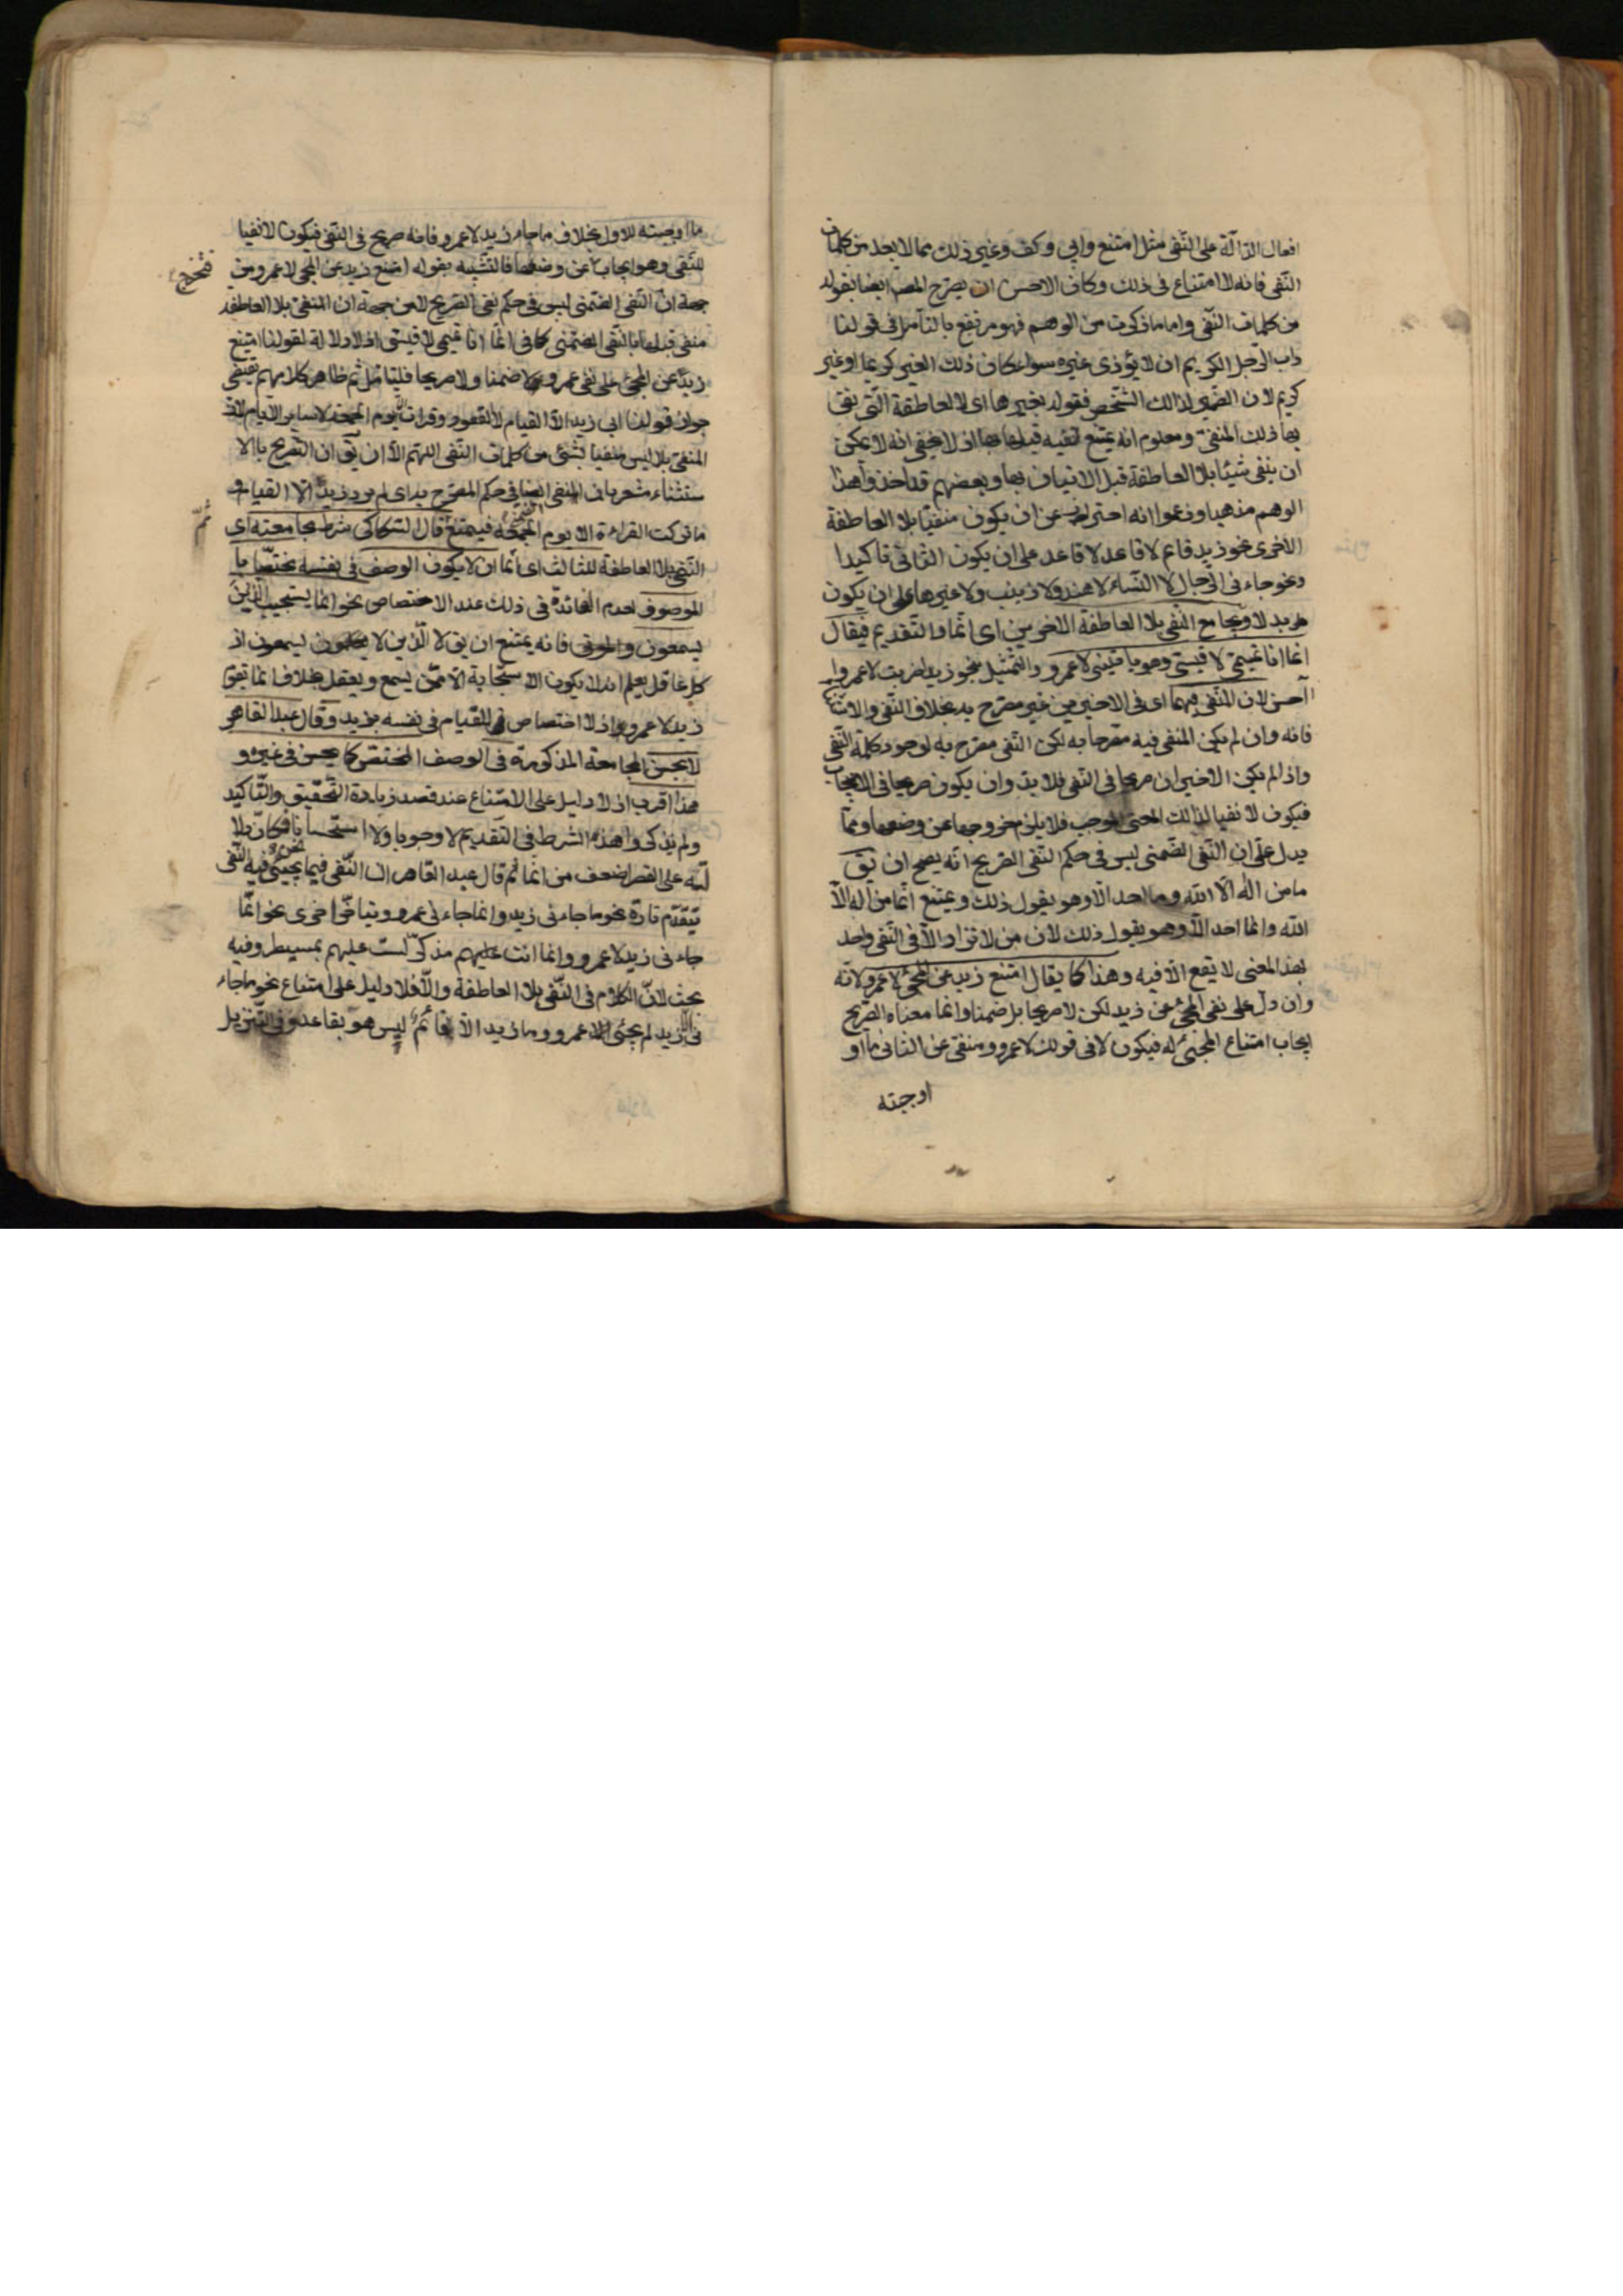 افعال الدالة على النفى مثل امتنع وابى وكف وغير ذلك مما لا يعد من كلمات
النفى فانه لا امتناع فى ذلك وكان الاحسن ان يصرح المصـ ايضا بقوله
من كلمات النفى واما ما ذكرت من الوهم فهو مرتفع بالتامل فى قولنا
داب الرجل الكريم ان لا يؤذى غيره سواء كان ذلك الغير كريما او غير
كريم لان الضمير لذالك الشخص فقوله بغيرها اى لا العاطفة التى نفى
بها ذلك المنفى ومعلوم انه يمتنع نفيه قبلها بها اذ لا يخفى انه لا يمكن
ان ينفى شيئا بلا العاطفة قبل الاتيان بها وبعضهم قد اخذ هذا
الوهم مذهبا وزعموا انه احتراز عن ان يكون منفيا بلا العاطفة
الاخرى نحو زيد قائم لا قاعد لا قاعد على ان يكون الثانى تاكيدا
ونحو جاءنى الرجال لا النساء لا هند ولا زينب ولا غيرها على ان يكون
ويجامع النفى بلا العاطفة الاخرين اى انما والتقديم فيقال
انما انا تميمى لا قيسى وهو ياتينى لا عمرو والتمثيل بنحو زيدا ضربت لا عمروا
احسن لان المنفى فيهما اى فى الاخيرين غير مصرح به بخلاف النفى والاستثناء
فانه وان لم يكن المنفى فيه مصرحا به لكن النفى مصرح به لوجود كلمة النفى
واذا لم يكن الاخيران صريحا فى النفى فلا بد وان يكون صريحا فى الايجاب
فيكون لا نفيا لذالك المعنى الموجب فلا يلزم خروجها عن وضعها ومما
يدل على ان النفى الضمنى ليس فى حكم النفى الصريح انه يصح ان يق
ما من اله الا الله وما احد الا وهو يقول ذلك ويمتنع انما من اله الا
الله وانما احد الا وهو يقول ذلك لان من لا تزاد الا فى النفى واحد
بهذا المعنى لا يقع الا فيه وهذا كما يقال امتنع زيد عن المجئ لا عمرو لانه
وان دل على نفى المجئ عن زيد لكن لا صريحا بل ضمنا وانما معناه الصريح
ايجاب امتناع المجئ له فيكون لا فى قولك لا عمرو ومنفى عن الثانى ما او
اوجبته
ما اوجبته للاول بخلاف ما جاء زيد لا عمرو فانه صريح فى النفى فيكون لا نفيا
للنفى وهو ايجاب عن وضعها فالتشبيه بقوله امتنع زيد عن المجئ لا عمرو من
فتخرج
جهة ان النفى الضمنى ليس فى حكم نفى الصريح لا من جهة ان المنفى بلا العاطفه
منفى قبلها بالنفى الضمنى كما فى انما انا تميمى لا قيسى اذ لا دلالة لقولنا امتنع
زيد عن المجئ على نفى عمرو لا ضمنا ولا صريحا فليتامل ثم ظاهر كلامهم يقتضى
جواز قولنا ابى زيد الا القيام لا القعود وقرات الا يوم الجمعة لا ساير الايام لان
المنفى بلا ليس منفيا بشئ من كلمات النفى اللهم الا ان يق ان التصريح بالا
ستثناء مشعر بان المنفى ايضا فى حكم المصرح به اى لم يرد زيد الا القيام و
ما تركت القراءة الا يوم الجمعة فيمتنع قال السكاكى شرط مجامعته اى
ثم
النفى بلا العاطفة للثالث اى انما ان لا يكون الوصف فى نفسه مختصا با
لموصوف لعدم الفائدة فى ذلك عند الاختصاص نحو انما يستجيب الذين
يسمعون فانه يمتنع ان يق لا الذين لا يسمعون اذ
كل عاقل يعلم انه لا يكون الاستجابة الا ممن يسمع ويعقل بخلاف انما يقوم
زيد لا عمرو اذ لا اختصاص للقيام فى نفسه بزيد وقال عبد القاهر
لا يحسن المجامعة المذكورة فى الوصف المختص كما يحسن فى غيره و
هذا اقرب اذ لا دليل على الامتناع عند قصد زيادة التحقيق والتاكيد
ولم يذكروا هذا الشرط فى التقديم لا وجوبا ولا استحسانا فكان دلا
لته على القصر اضعف من انما ثم قال عبد القاهر ان النفى فيما يجئ فيه النفى
يتقدم تارة نحو ما جاءنى زيد وانما جاءنى عمرو ويتاخر اخرى نحو انما
جاءنى زيد لا عمرو وانما انت مذكر لست عليهم بمسيطر وفيه
بحث لان الكلام فى النفى بلا العاطفة والا فلا دليل على امتناع نحو ما جاء
نى الا زيد لم يجئ عمرو وما زيد الا قائم ليس هو بقاعد وفى التنزيل